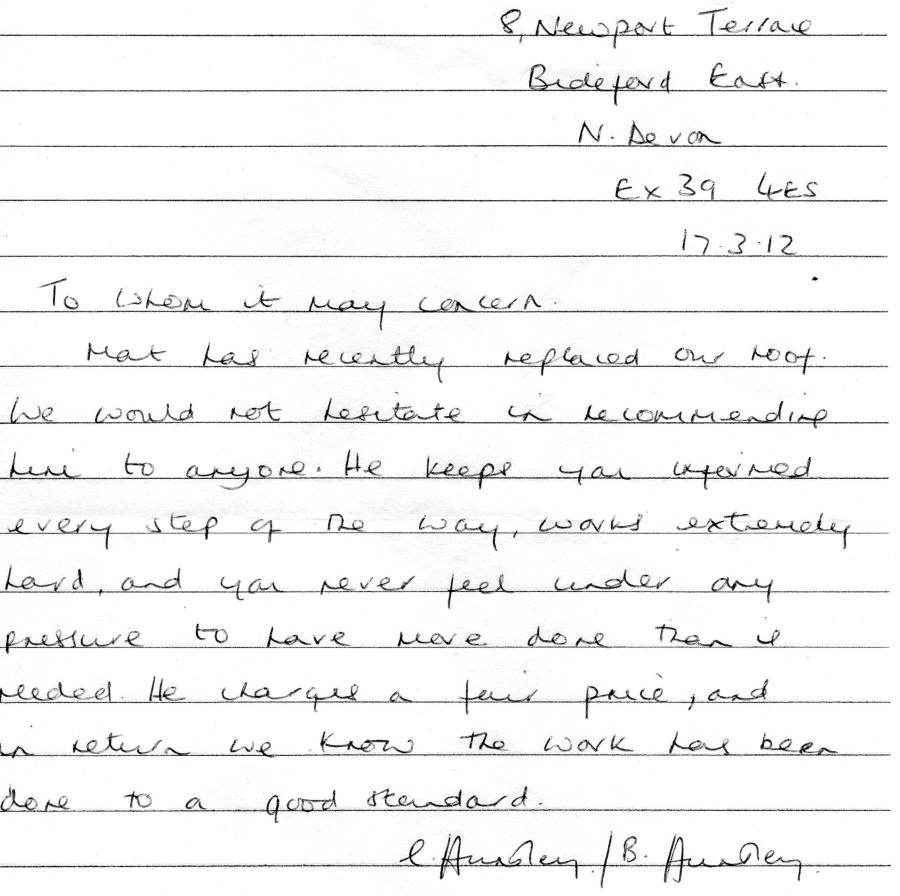 8, Newport Terrace
Bideford East.
N. Devon
EX 39 4ES
17.3.12
To whom it may concern.
Mat has recently replaced our roof.
We would not hesitate in recommending
him to anyone. He keeps you informed
every step of the way, works extremely
hard, and you never feel under any
pressure to have more done than is
needed. He charges a fair price, and
in return we know the work has been
done to a good standard.
/ B.